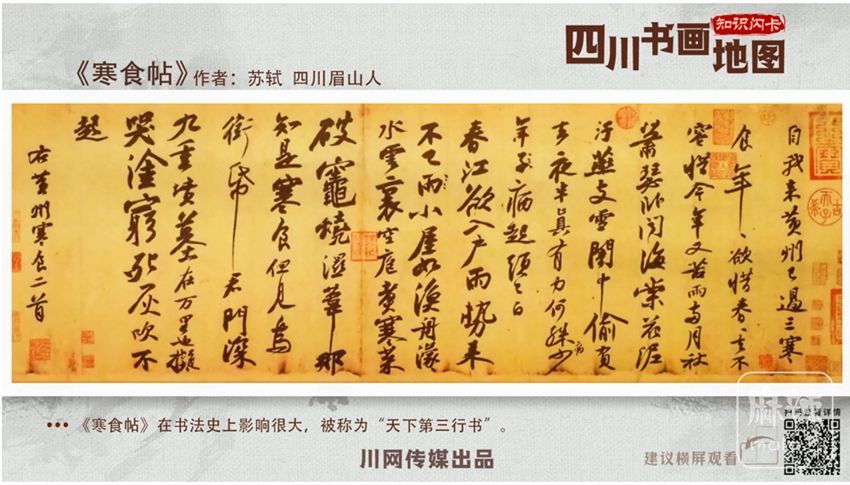 知识闪卡
四川书画地图
《寒食帖》作者：苏轼 四川眉山人
自我来黄州已過三寒
食年〻欲惜春〻去不
容惜今年又苦雨兩月秋
蕭瑟卧聞海棠花泥
汙燕支雪闇中偷負
去夜半真有力何殊少
病
年子病起頭已白
春江欲入户雨勢来
不已雨小屋如漁舟濛〻
水雲裏空庖煮寒菜
破竈燒濕葦那
知是寒食但見烏
銜帋君門深
九重墳墓在万里也擬
哭塗窮死灰吹不
起
右黄州寒食二首
••• 《寒食帖》在书法史上影响很大，被称为“天下第三行书”。
川网传媒出品
建议横屏观看
扫码查看详情